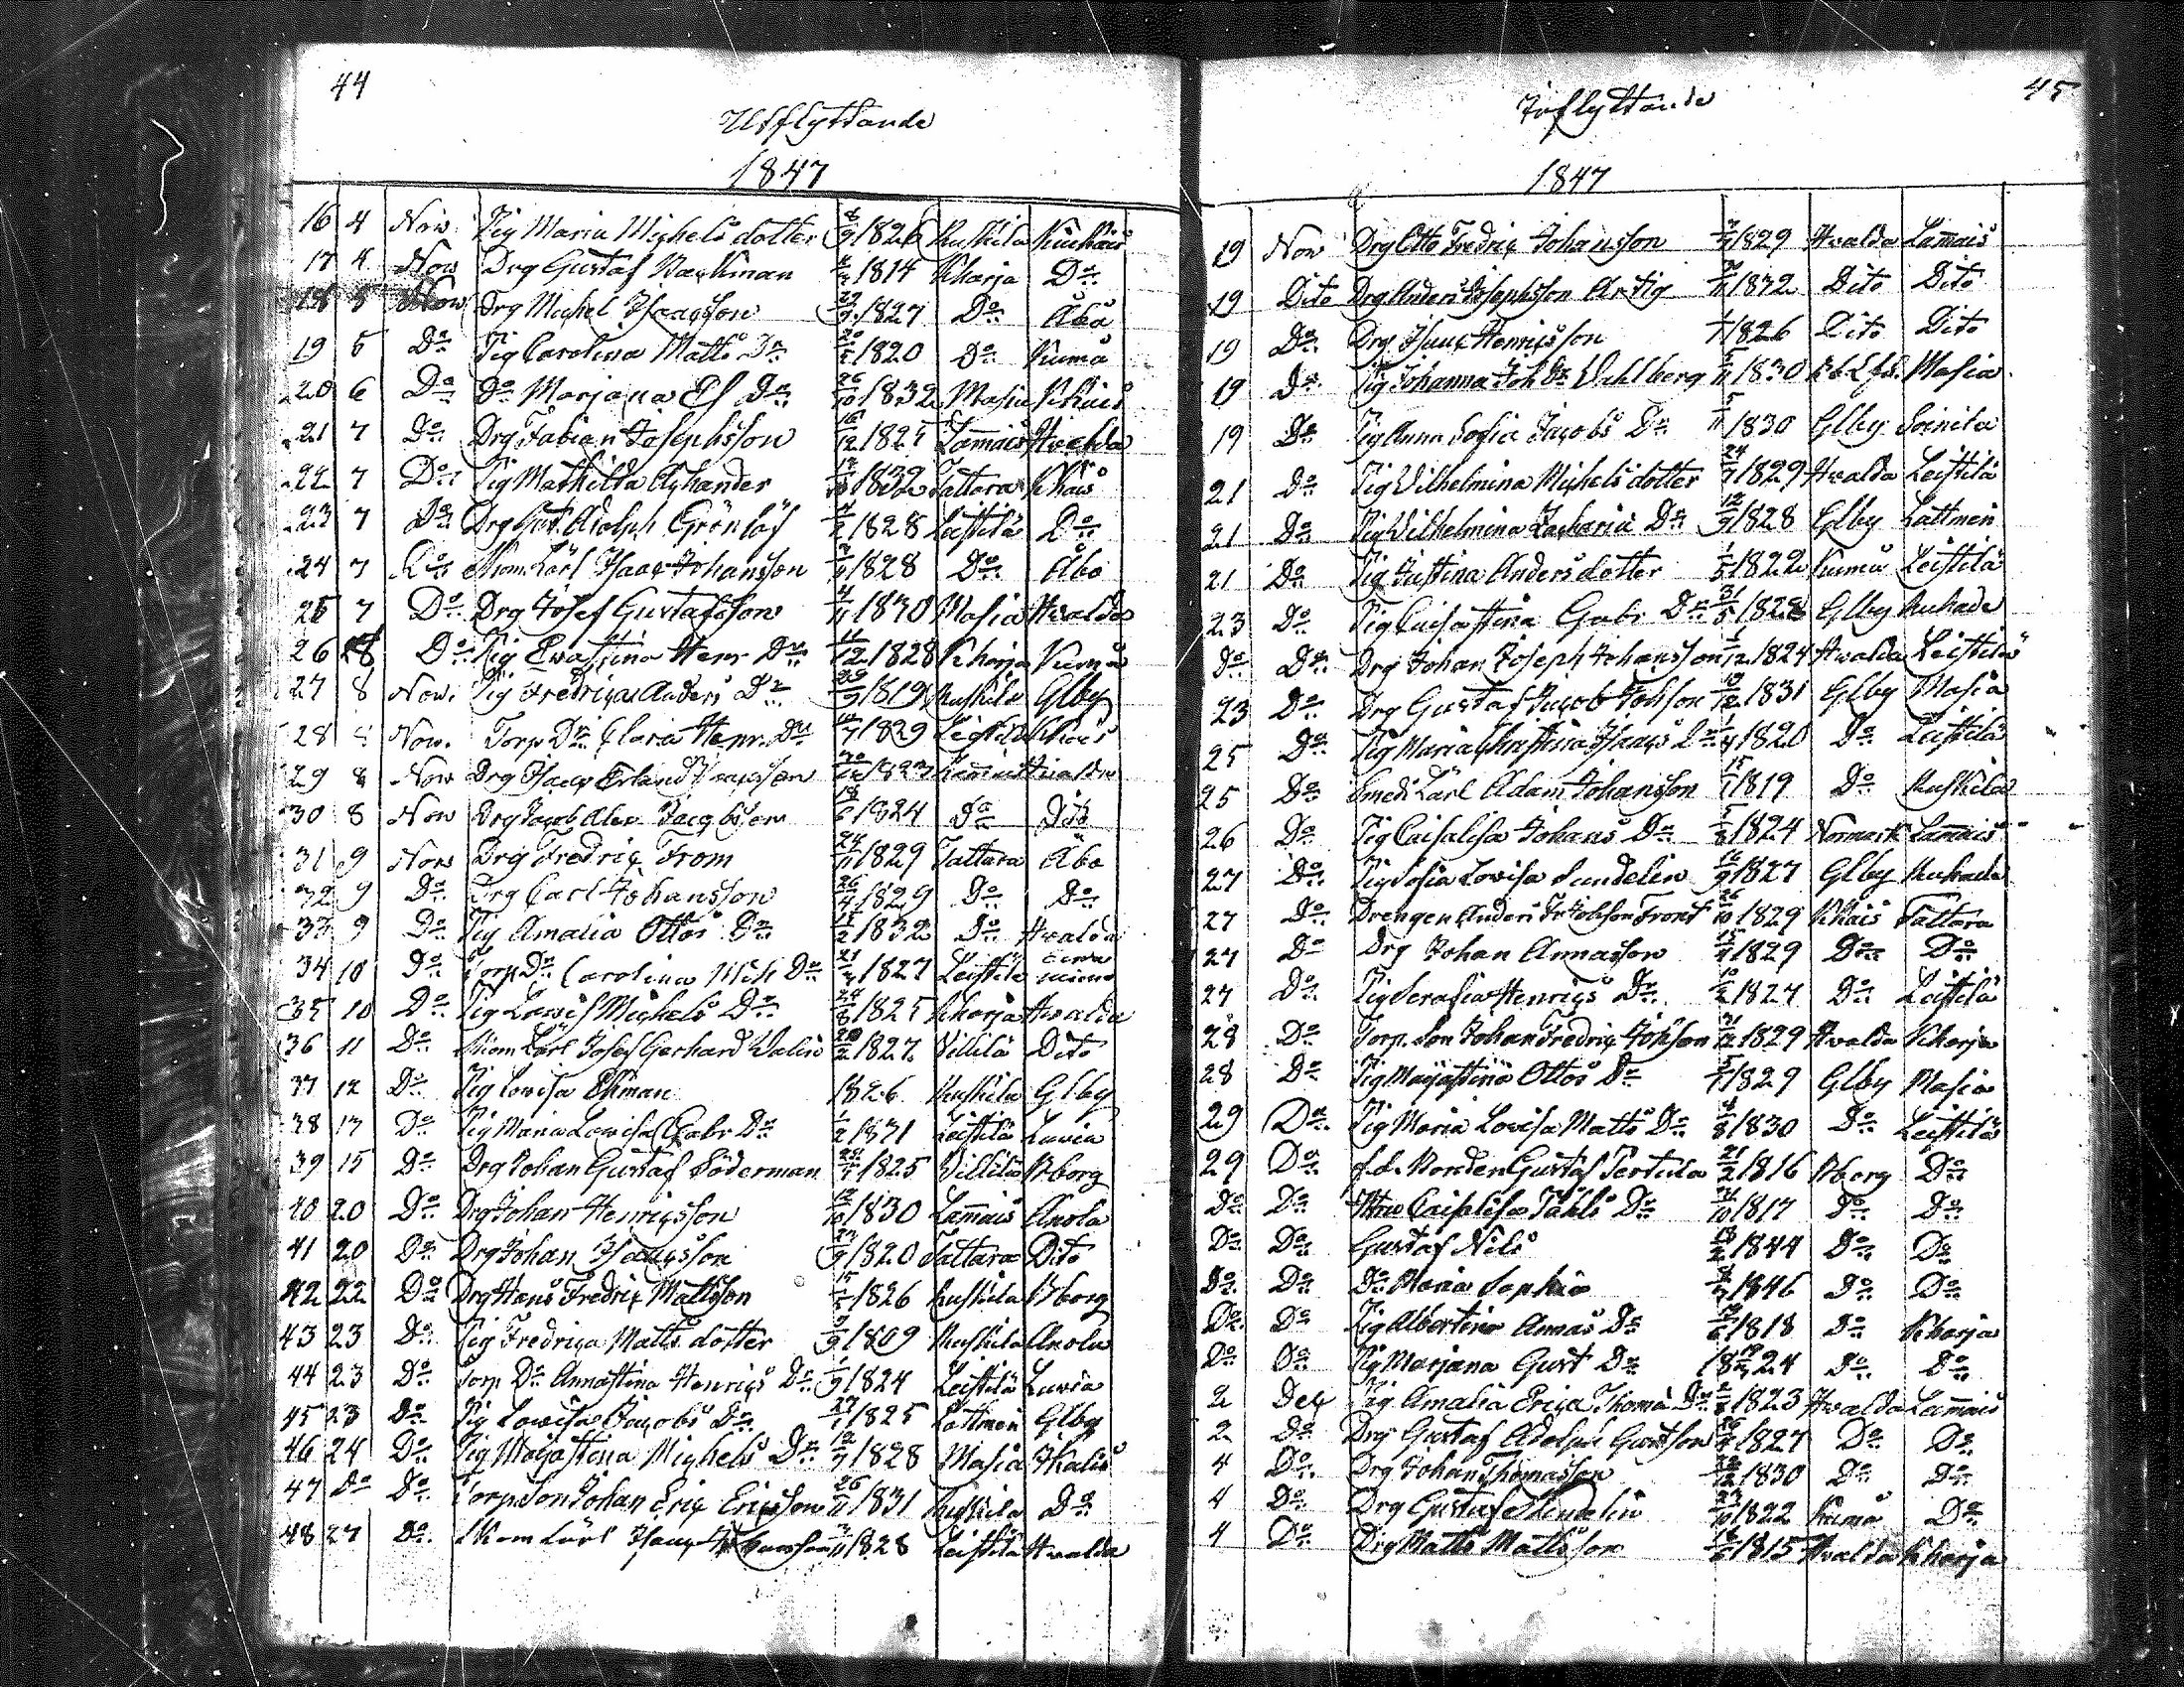 44
Utflyttande
1847
16 4 Nov. Pig Maria Michels dotter 8/9 1826 Ruskila Kiukais
17 4 Nov Drg Gustaf Backman 1814 Kharja Do
18 5 Nov Drg Michel Isacsson 29/9 1827 Do Åbo
19 5 Do Pig Carolina Matts Dr 20/5 1820 Do Kumå
20 6 Do Do Marjana Dr 26/10 1832 Masia Khais
21 7 Do Drg Fabian Josephsson 16/12 182 Lammais Hvalda
22 7 Do Pig Mathilda 1832 Tattara Khais
23 7 Do Drg Gust. Adolph Grönlöf 1828 Leistilä Do
24 7 Do Skom. Lärl Isaac Johansson 1828 Do Åbo
25 7 Do Drg Josef Gustafsson 4/11 1830 Masia Hvalda
26 8 Do Pig Evastina Henr Dr 11/12 1828 Kharja Kumå
27 8 Nov. Pig Fredrica Anders Dr 1819 Ruskila Glby
28 8 Nov. Torp Dr Clara Henr. Dr 1829 Leistilä Khais
29 8 Nov Drg Isac Erland Isacsson Lammais Hvalda
30 8 Nov Drg Jacob Alex Jacobsson 18/6 1824 Do Dito
31 9 Nov Drg Fredric From 24/11 1829 Tattara Åbo
32 9 Do Drg Carl Johansson 26/4 1829 Do Do
33 9 Do Pig Amalia Ottos Dr 1832 Do Hvalda
34 10 Do Torp Dr Carolina Mich Dr 1827 Leistilä
35 10 Do Pig Lovis Michels Dr 24/8 1825 Kharja Hvalda
36 11 Do Skom Lärl Josef Gerhard Walin 1827 Villilä Dito
37 12 Do Pig Lovisa Ekman 1826 Ruskila Glby
38 13 Do Pig Maria Lovisa Gabr Dr 1/2 1831 Leistilä Luvia
39 15 Do Drg Johan Gustaf Söderman 1825 Villilä Bborg
40 20 Do Drg Johan Henricsson 12/10 1830 Lammais Anola
41 20 Do Drg Johan Isacsson 23/9 1820 Tattara Dito
42 22 Do Drg Hans Fredric Mattsson 1826 Ruskila Bborg
43 23 Do Pig Fredrica Matts dotter 1809 Ruskila Anola
44 23 Do Torp Dr Annastina Henrics Dr 1/9 1824 Leistilä Luvia
45 23 Do Pig Lovisa Jacobs Dr 27/1 1825 Lattmen Glby
46 24 Do Pig Majastina Michels Dr 1828 Masia Khalis
47 Do Do Torp. Son Johan Eric Ericsson 26/11 1831 Ruskila Do
48 27 Do. Skom Lärl Isaac Johansson 1828 Leistilä Hvalda
45
Inflyttande
1847
19 Nov Drg Otto Fredric Johansson 1829 Hvalda Lammais
19 Dito Drg Anders Josephsson Artig 1832 Dito Dito
19 Do Drg Isaac Henricsson 1826 Dito Dito
19 Do Pig Johanna Joh Dr Dahlberg 5/11 1830 Masia
19 Do Pig Anna Sofia Jacobs Dr 5/11 1830 Glby Soinila
21 Do Pig Vilhelmina Michels dotter 24/7 1829 Hvalda Leistilä
21 Do Pig Vilhelmina Zacharia Dr 12/9 1828 Glby Lattmen
21 Do Pig Justina Anders dotter 1/5 1822 Kumå Leistilä
23 Do Pig Caisastina Gabr. Dr 31/5 1828 Glby Ruhade
Do Do Drg Johan Joseph Johansson 1/12 1824 Hvalda Leistilä
23 Do Drg Gustaf Jacob Johsson 19/12 1831 Glby Masia
25 Do Pig Maria Christina Isacs Dr 1/4 1820 Do Leistilä
25 Do Smeds Lärl Adam Johansson 15/1 1819 Do Ruskila
26 Do Pig Caisalisa Johans Dr 5/8 1824 Normark Lammais
27 Do Pig Sofia Lovisa Sundelin 1827 Glby Ruhade
27 Do Drengen Anders Fr Johsson Frost 26/10 1829 Khais Tattara
27 Do Drg Johan Annasson 1829 Do Do
27 Do Pig Serafia Henrics Dr 1827 Do Leistilä
28 Do Torp. Son Johan Fredric Johsson 31/12 1829 Hvalda Kharja
28 Do Pig Majastina Ottos Dr 5/7 1829 Glby Masia
29 Do Pig Maria Lovisa Matts Dr 1830 Do Leistilä
29 Do f.d. Bonden Gustaf Pertula 21/2 1816 Bborg Do
Do Do Hru Caisalisa Påhls Dr 1817 Do Do
Do Do Gustaf Nils 1844 Do Do
Do Do Do Maria Sophia 1846 Do Do
Do Do Pig Albertina Annas Dr 1818 Do Kharja
Do Do Pig Marjana Gust Dr 1824 Do Do
2 Dec Pig Amalia Erica Thomas Dr 1823 Hvalda Lammais
2 Do Drg Gustaf Adolph Gustsson 1827 Do Do
4 Do Drg Johan Thomasson 1830 Do Do
4 Do Drg Gustaf 1822 Kumå Do
4 Do Drg Matts Mattsson 1815 Hvalda Kharja